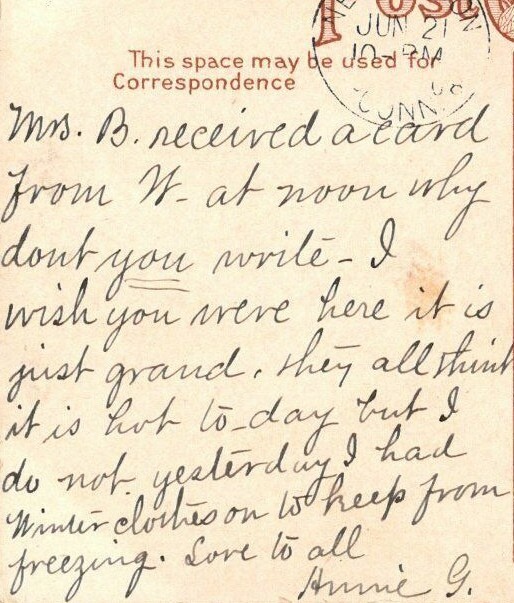 POST
NE ON
JUN 21
10-PM
08
CONN.
This space may be used for
Correspondence
Mrs. B. received a card
from W- at noon why
dont you write - I
wish you were here it is
just grand. they all think
it is hot to-day but I
do not. yesterday I had
Winter clothes on to keep from
freezing. Love to all
Annie G.